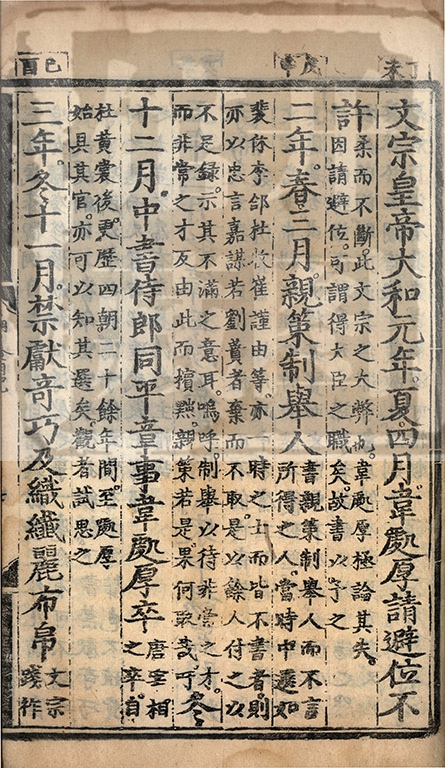 丁未
文宗皇帝大和元年。夏四月韋處厚請避位不
許
柔而不斷。此文宗之大弊也。韋處厚極論其失。
因請避位。可謂得大臣之職矣。故書以予之
戊申
二年。春三月。親策制舉人
書親策制舉人而不言
所得之人。當時中選如
裴休李郃杜牧崔謹由等。亦一時之士而皆不書者。則
亦以忠言嘉謀若劉蕡者棄而不取。是以餘人付之以
不足錄。示其不滿之意耳。嗚呼。制舉以待非常之才。
而非常之才反由此而擯黜。親策若是果何取哉。吁
冬
十二月。中書侍郎同平章事韋處厚卒
唐宰相
之卒。自
杜黃裳後。更歷四朝二十餘年間。至處厚
始具其官。亦可以知其選矣。觀者試思之
己酉
三年。冬十一月。禁獻奇巧及織纖麗布帛
文宗
踐祚